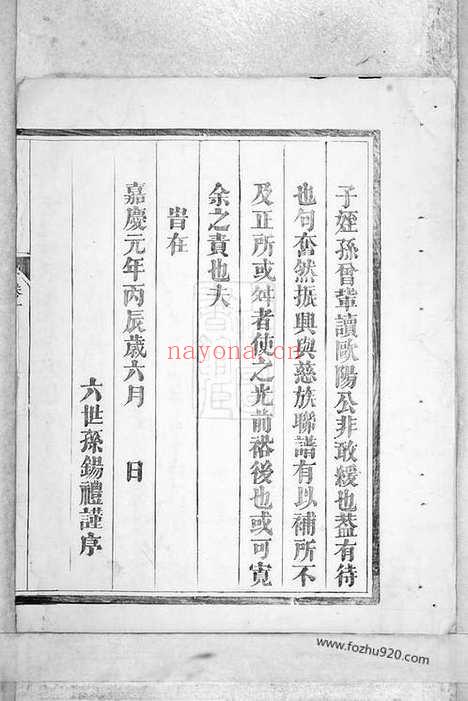 子姪孫曾輩讀歐陽公非敢緩也葢有待
也句奮然振興與慈族聯譜有以補所不
及正所或舛者使之光前裕後也或可寬
余之責也夫
旹在
嘉慶元年丙辰歲六月 日
六世孫錫禮謹序
nayona.cn
www.fozhu920.com